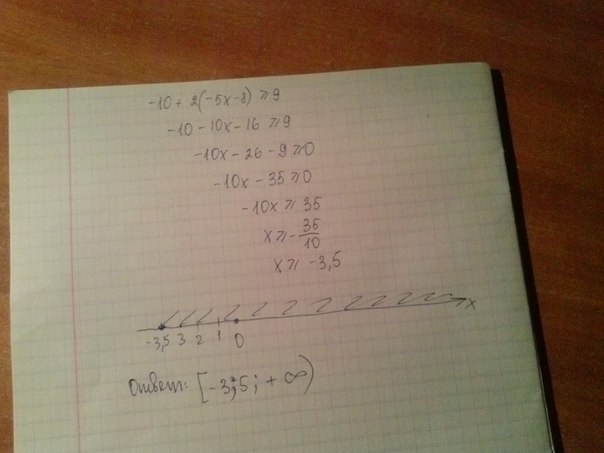 -10 + 2(-5x-8) ≥ 9
-10 - 10x - 16 ≥ 9
-10x - 26 - 9 ≥ 0
-10x - 35 ≥ 0
-10x ≥ 35
x ≥ - 35/10
x ≥ -3,5
-3,5 3 2 1 0 x
Ответ: [-3,5; +∞)